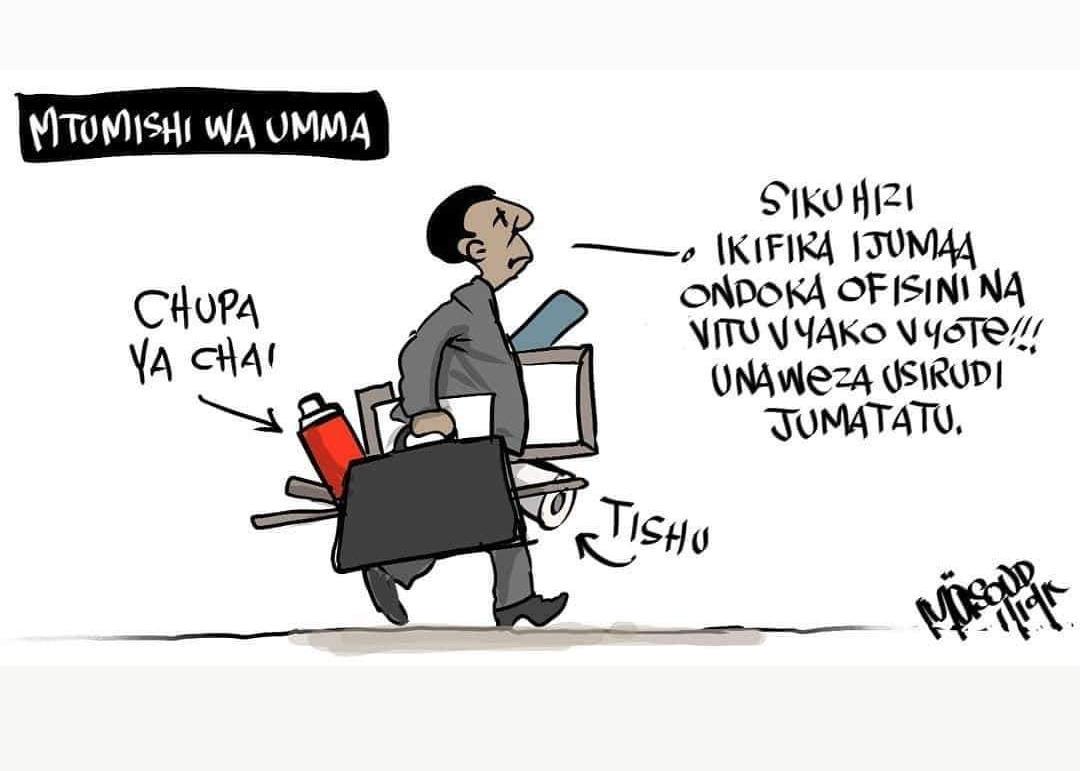 MTUMISHI WA UMMA
SIKU HIZI
IKIFIKA IJUMAA
ONDOKA OFISINI NA
VITU VYAKO VYOTE!!!
UNAWEZA USIRUDI
JUMATATU.
CHUPA
YA CHAI
TISHU